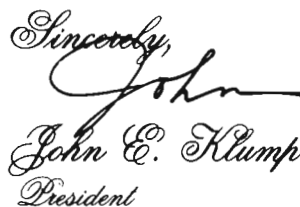 Sincerely,
John
John E. Klump
President